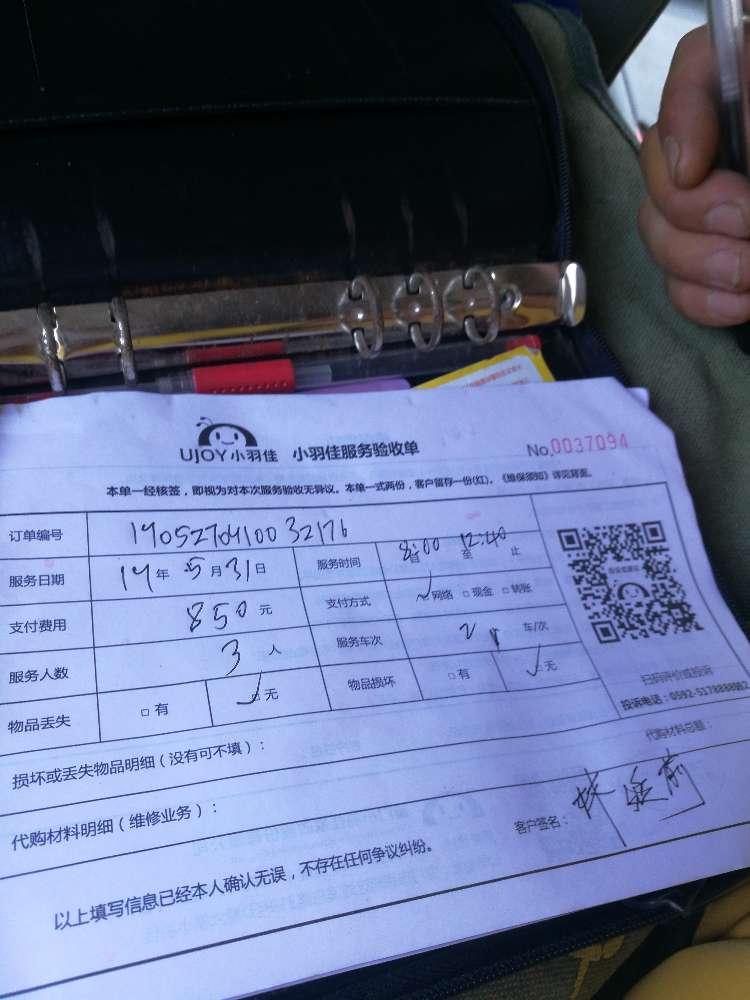 UJOY小羽佳 小羽佳服务验收单 No.0037094
本单一经核签，即视为对本次服务验收无异议。本单一式两份，客户留存一份(红)。《维保须知》详见背面。
订单编号 1905270410032176
服务日期 19年5月31日 服务时间 8:00 至 12:40 止
支付费用 850元 支付方式 网络 □现金 □转账
服务人数 3人 服务车次 车/次
物品丢失 □有 □无 物品损坏 □有 □无
扫码评价或投诉
投诉电话：0592-5178888
损坏或丢失物品明细（没有可不填）：
代购材料明细（维修业务）： 代购材料总额：
客户签名：
以上填写信息已经本人确认无误，不存在任何争议纠纷。